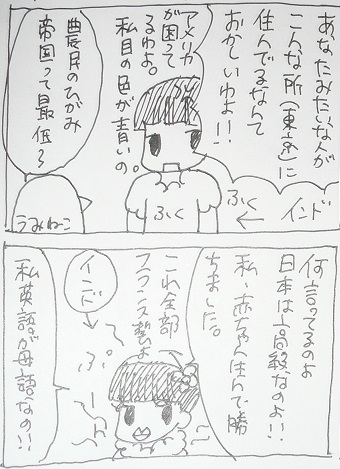 あなたみたいな人が
こんな所(東京)に
住んでるなんて
おかしいわよ!!
アメリカ
が困って
るわよ。
私目の色が青いの。
農民のひがみ
帝国って最低〜
うみねこ
ふく
ふく
←
インド
何言ってるのよ
日本は高級なのよ!!
私、赤ちゃん住んで勝
ちました。
これ全部
フランス製よ
インド
ぷ〜ん
私英語が母語なの!!